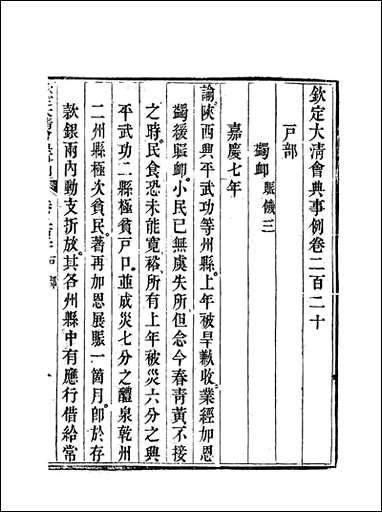 欽定大清會典事例卷二百二十
戸部
蠲䘏賑饑三
嘉慶七年
諭陝西興平武功等州縣上年被旱歉收業經加恩
蠲緩賑䘏小民已無虞失所但念今春靑黃不接
之時民食恐未能寬裕所有上年被災六分之興
平武功二縣極貧戸口並成災七分之醴泉乾州
二州縣極次貧民著再加恩展賑一箇月卽於存
款銀兩內動支折放其各州縣中有應行借給常